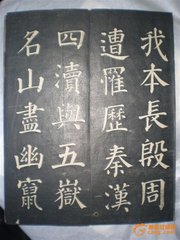 我本長殷周
遭罹歷秦漢
四瀆與五嶽
名山盡幽竄